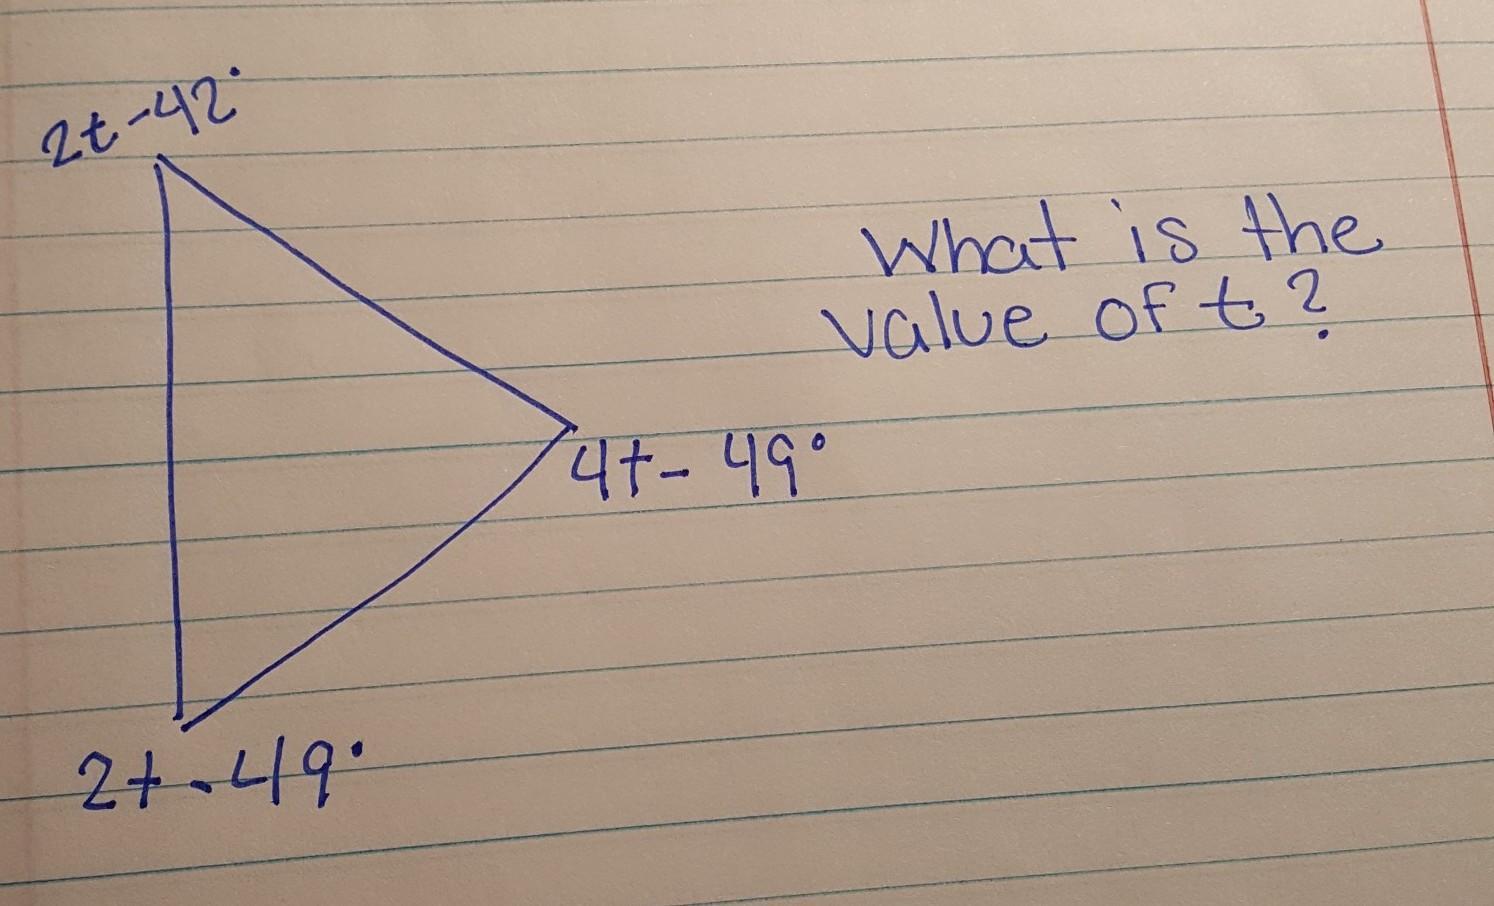 2t-42°
What is the
value of t?
4t- 49°
2t-49°